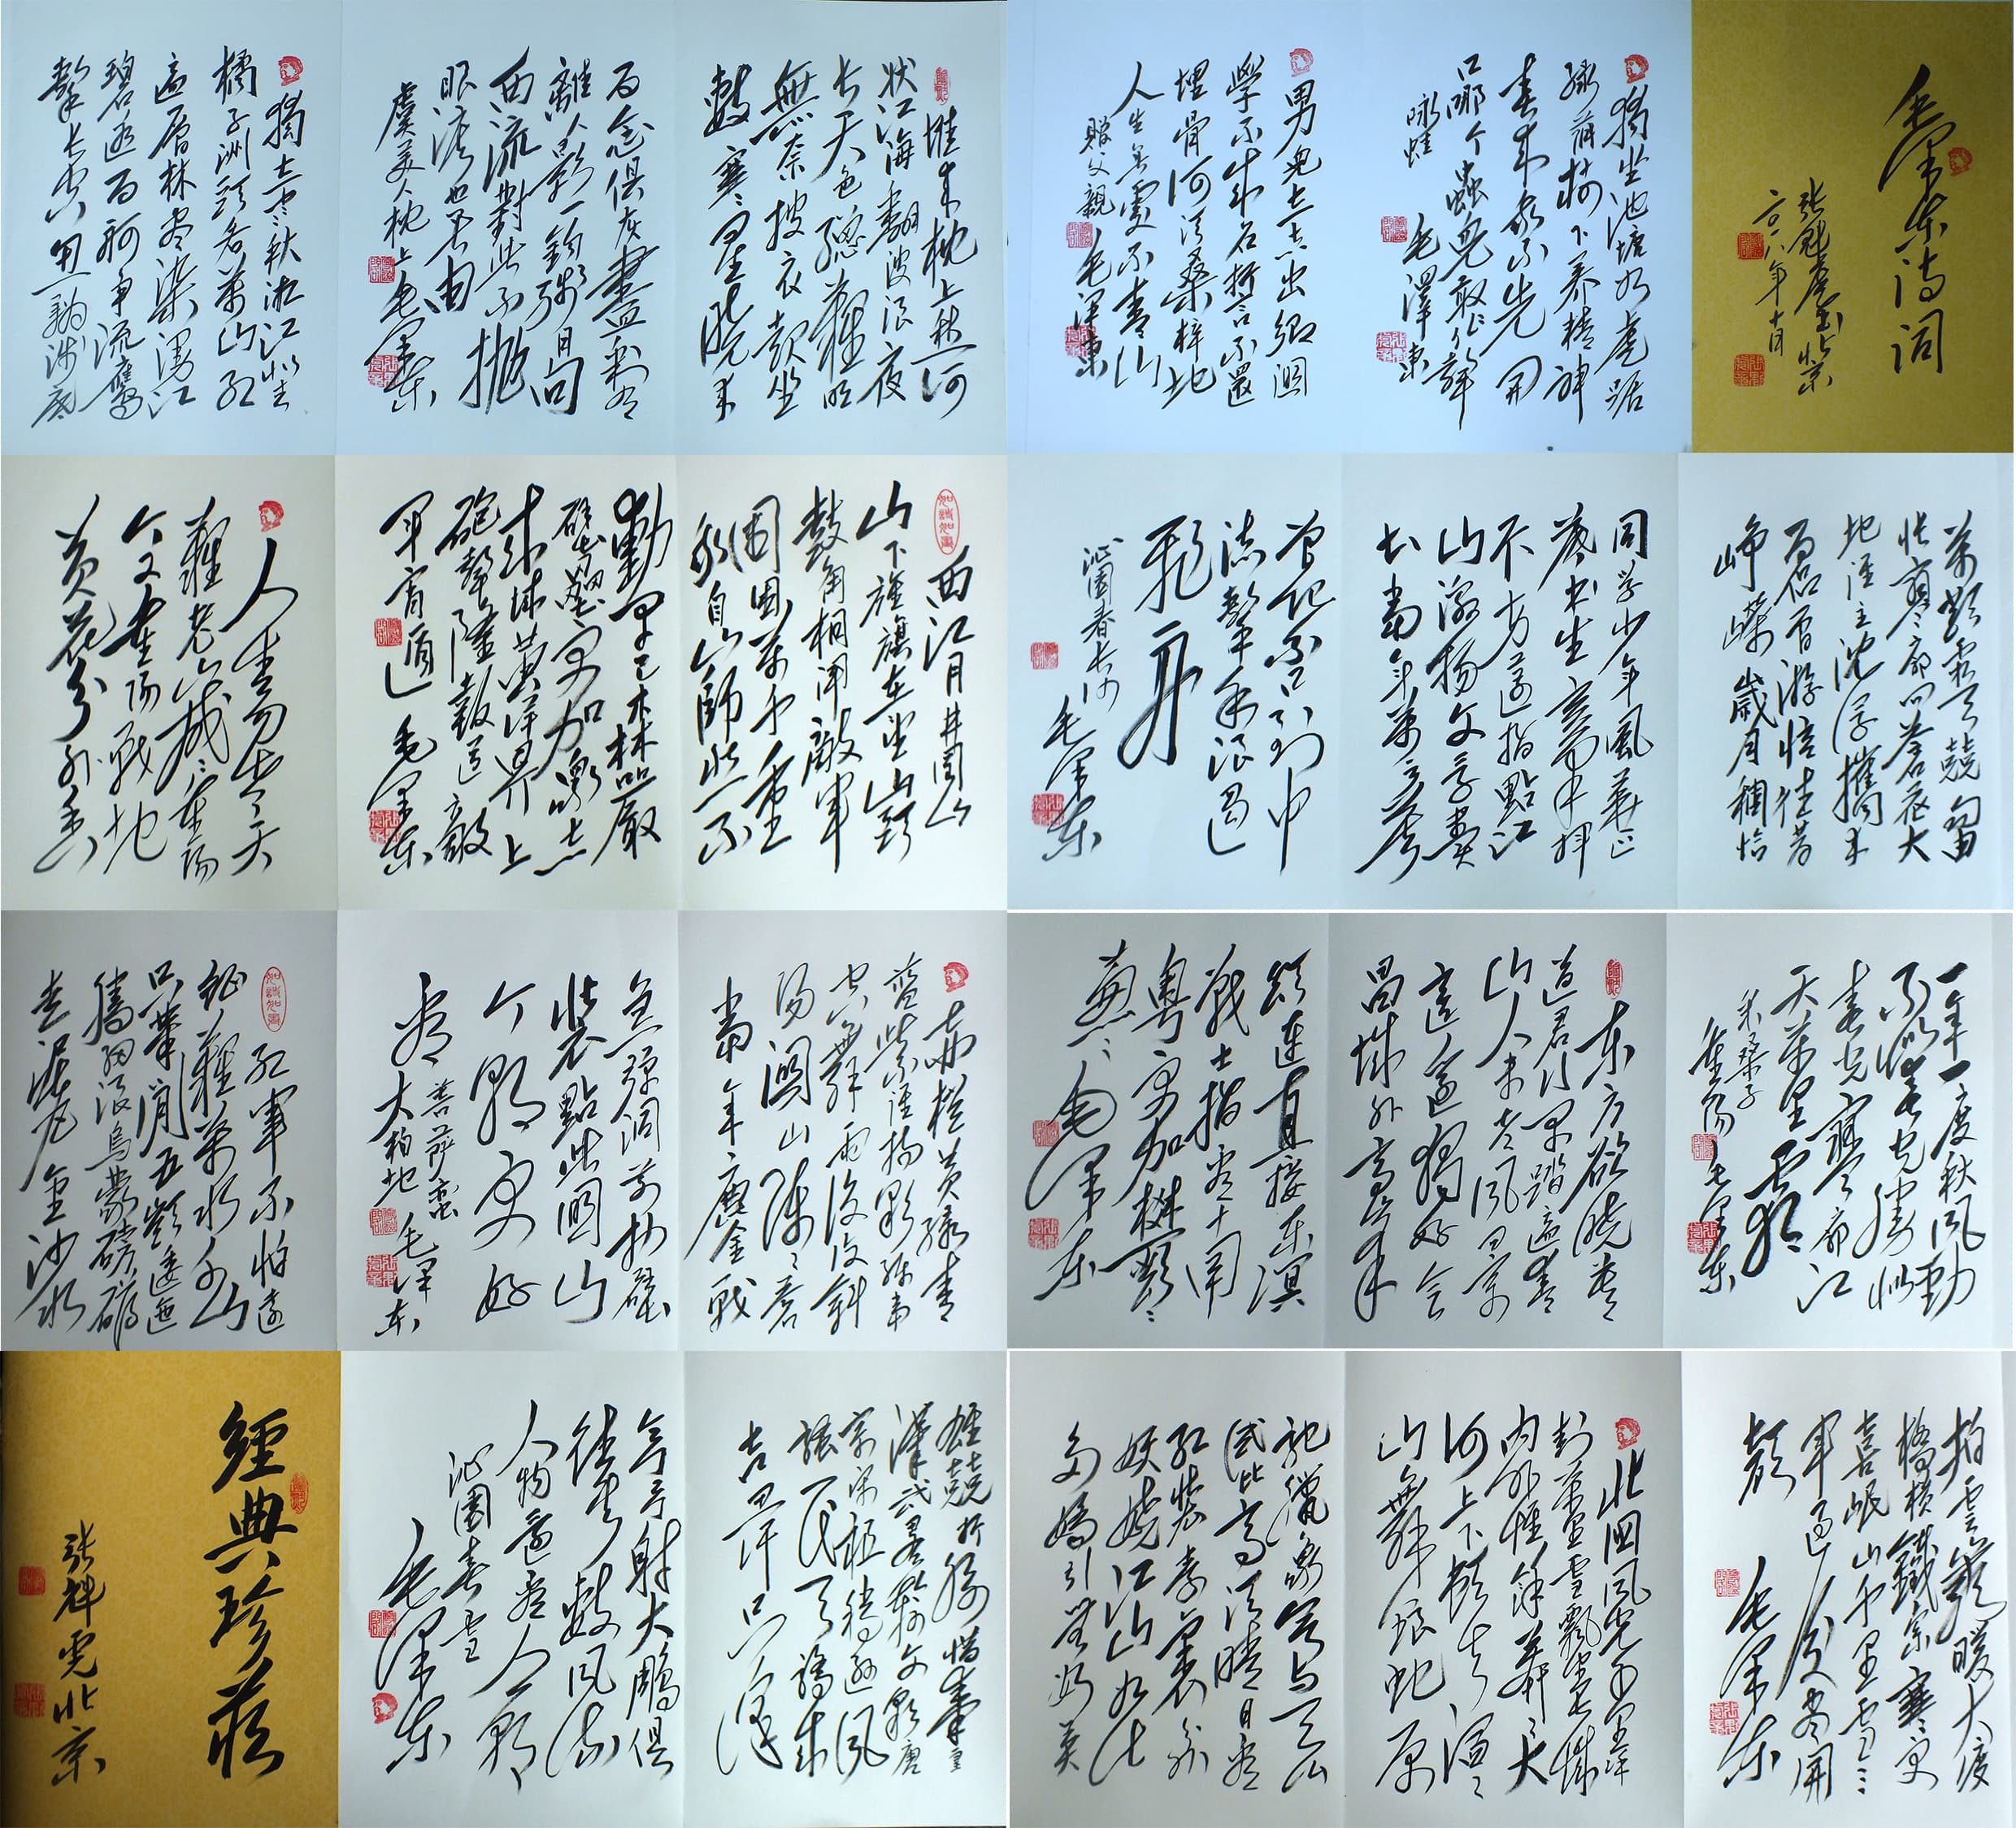 毛泽东诗词
二〇一八年十月
獨坐池塘如虎踞
绿荫树下养精神
春來我不先開
口哪个蟲兒敢作聲
咏蛙
毛澤東
男兒立志出鄉關
學不成名誓言不還
埋骨何須桑梓地
人生無處不青山
贈父親
毛泽東
堆來枕上愁何
状江海翻波浪夜
长天色總難明
無奈披衣起坐
數寒星曉來
百念俱灰盡剩有
離人影一鈎殘月向
西流對此不抛
眼淚也無由
虞美人枕上 毛泽东
獨立寒秋湘江北去
橘子洲頭看萬山红
遍層林盡染漫江
碧透百舸争流鷹
擊长空魚翔淺底
萬類霜天競自由
怅寥廓問蒼茫大
地谁主沈浮攜來
百侣曾游憶往昔
崢嶸歲月稠恰
同学少年風華正
茂书生意气揮
斥方遒指點江
山激扬文字粪
土当年萬户侯
曾记否到中
流擊水浪遏
飛舟
沁園春长沙
毛泽东
西江月井岡山
山下旌旗在望山頭
鼓角相聞敵軍
圍困萬千重
我自岿然不
動早已森嚴
壁壘更加众志
成城黄洋界上
砲聲隆報道敵
軍宵遁 毛泽东
人生易老天
難老歲歲重陽
今又重阳戰地
黄花分外香
一年一度秋风勁
不似春光勝似
春光寥廓江
天萬里霜
采桑子
重陽 毛泽东
东方欲曉莫
道君行早踏遍青
山人未老风景
這邊獨好会
昌城外高峰
颠连直接东溟
戰士指看南
粤更加郁郁
葱葱 毛泽东
赤橙黄绿青
蓝紫谁持彩练當
空舞雨後復斜
陽關山陣陣苍
當年鏖戰
急彈洞前村壁
装點此關山
今朝更好
看 菩萨蛮
大柏地 毛泽东
红軍不怕遠
征難萬水千山
只等閒五嶺逶迤
騰细浪烏蒙磅礴
走泥丸金沙水
拍雲崖暖大渡
橋横鐵索寒更
喜岷山千里雪三
軍過后盡開
颜 毛泽东
北國风光千里冰
封萬里雪飘望長城
内外惟餘莽莽大
河上下頓失滔滔
山舞银蛇原
驰蜡象欲与天公
試比高須晴日看
红装素裹分外
妖娆江山如此
多嬌引無數英
雄競折腰惜秦皇
漢武略輸文采唐
宗宋祖稍遜风
骚一代天驕成
吉思汗只識
彎弓射大鵰俱
往矣數风流
人物還看今朝
沁園春雪
毛泽东
經典珍藏